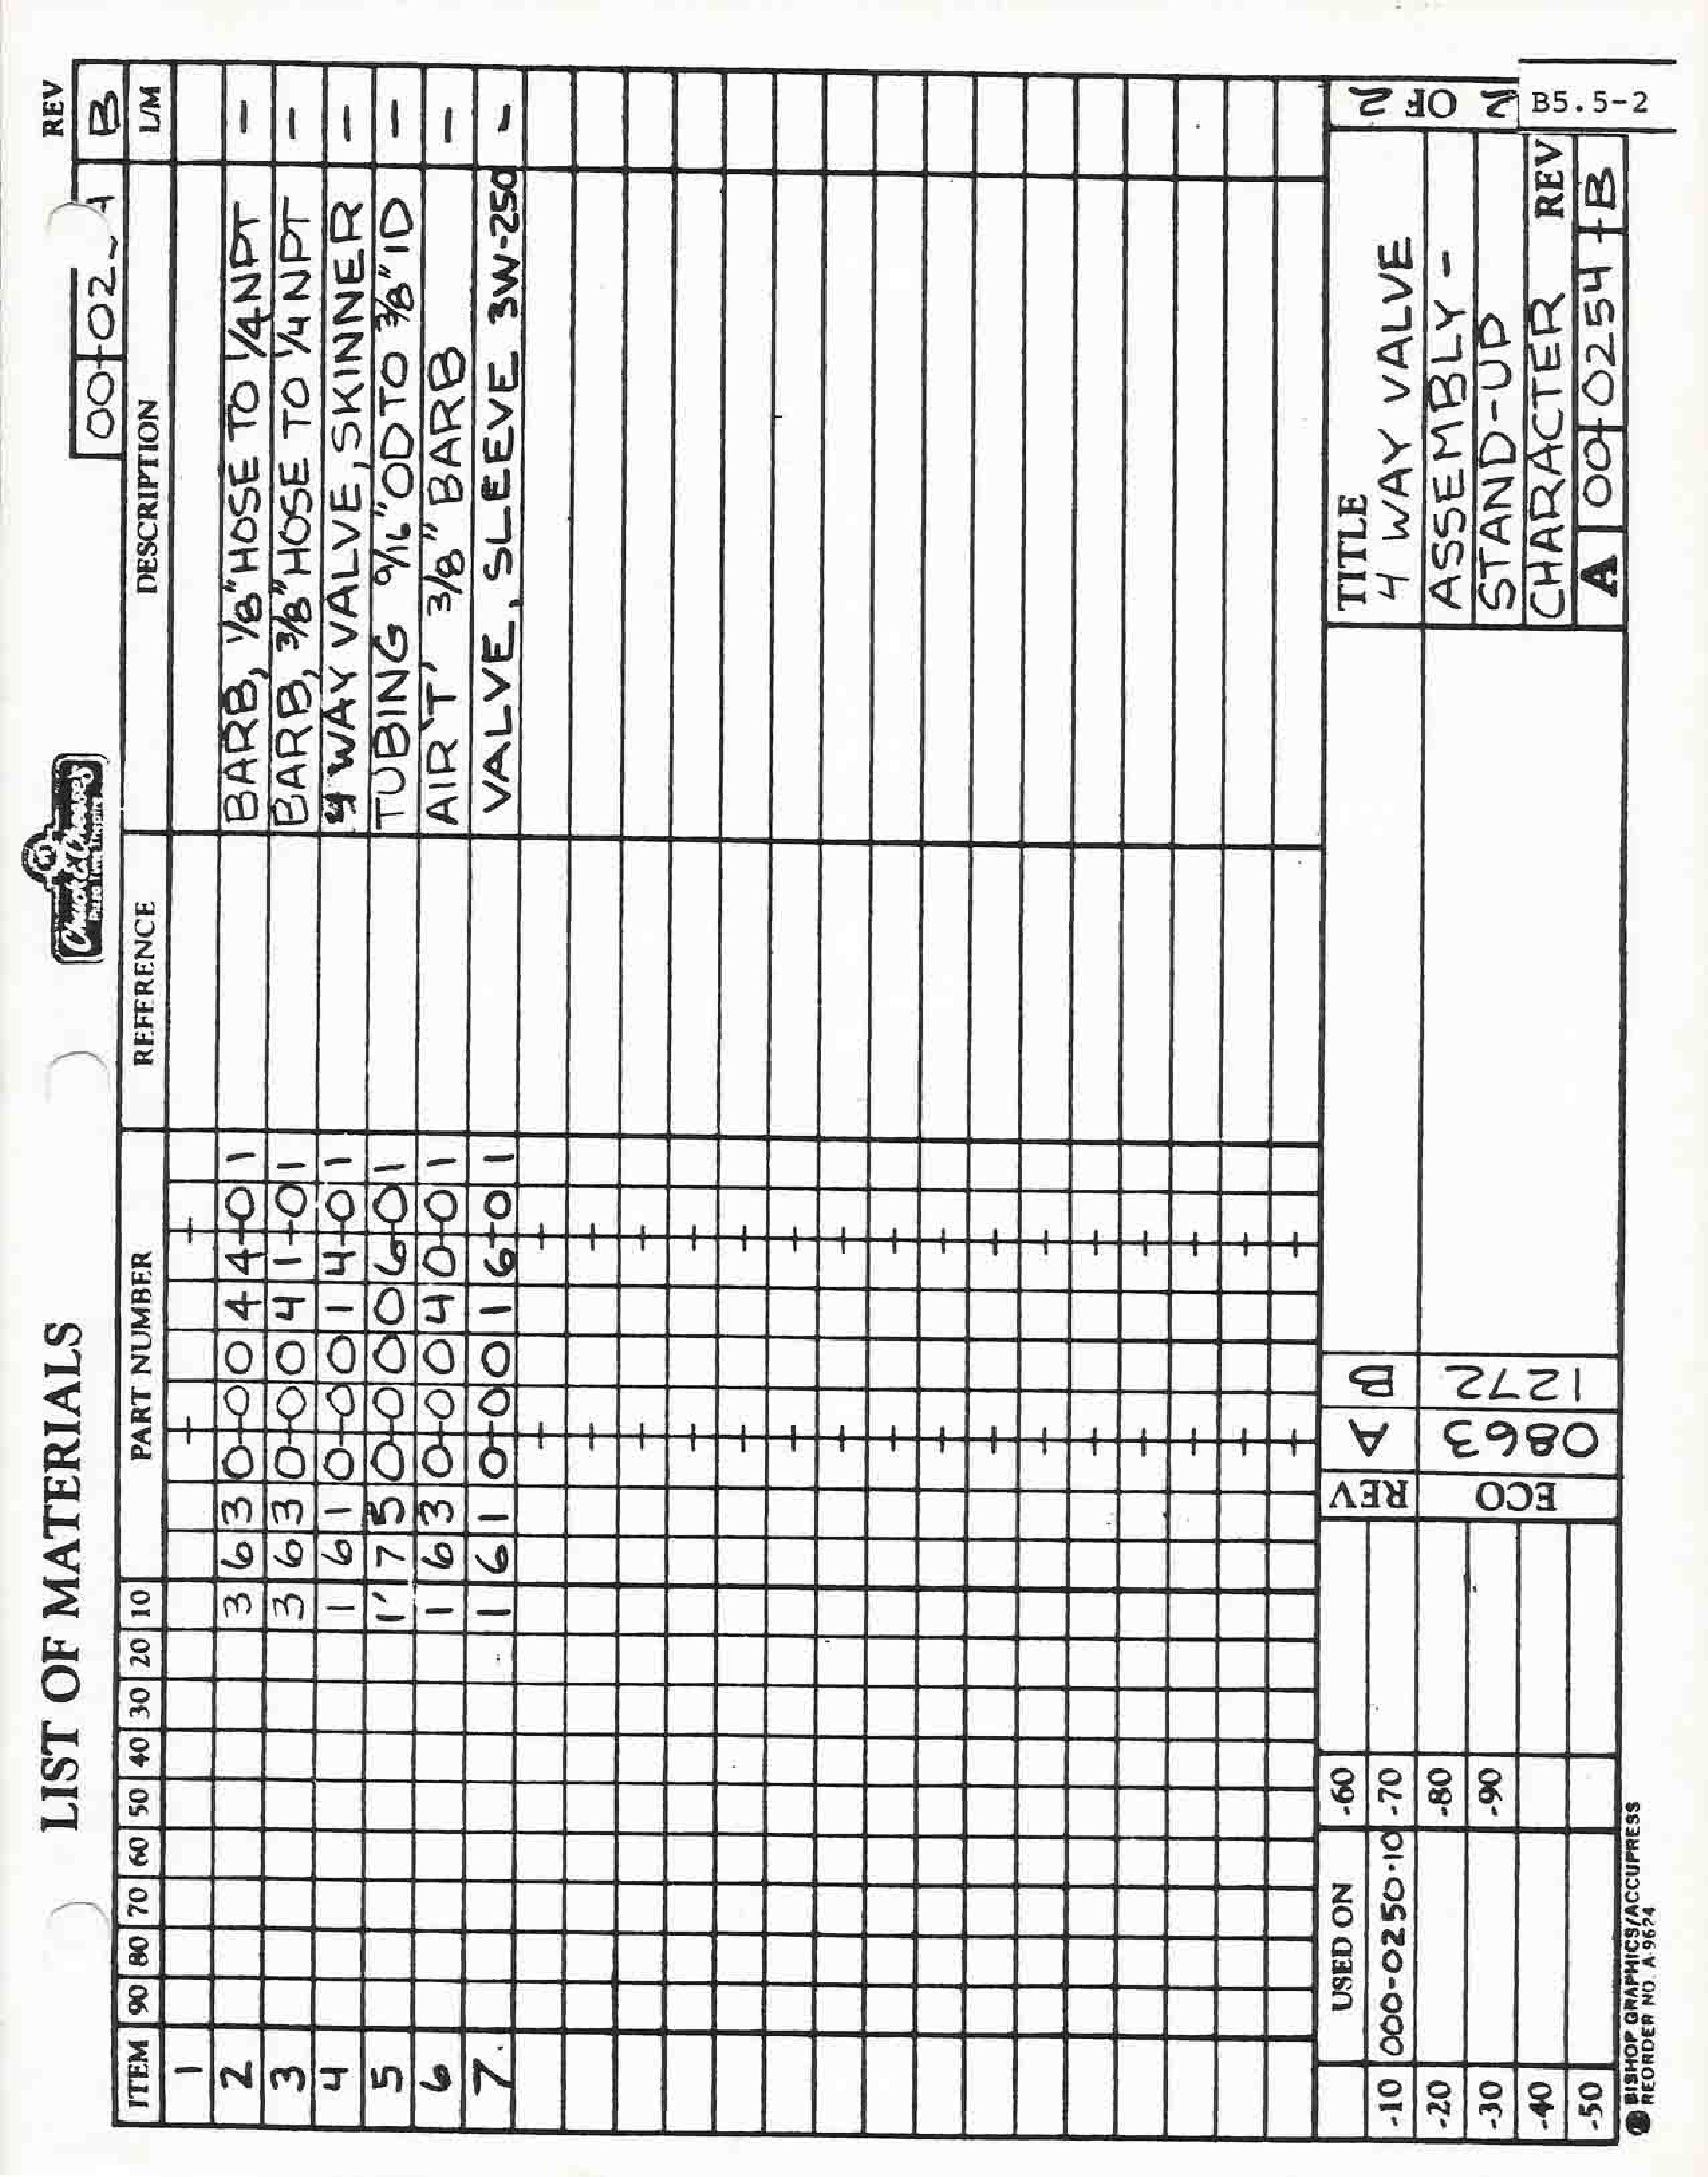 LIST OF MATERIALS
Chuck E. Cheese's
Pizza Time Theatre
REV
00-02 B
ITEM 90 80 70 60 50 40 30 20 10 PART NUMBER REFERENCE DESCRIPTION L/M
1
2 3 630-0044-01 BARB, 1/8" HOSE TO 1/4 NPT -
3 3 630-0041-01 BARB, 3/8" HOSE TO 1/4 NPT -
4 1 610-0014-01 4 WAY VALVE, SKINNER -
5 1' 750-0006-01 TUBING 9/16" OD TO 3/8" ID -
6 1 630-0040-01 AIR 'T' 3/8" BARB -
7. 1 610-0016-01 VALVE, SLEEVE 3W-250 -
USED ON
-10 000-0250-10
-20
-30
-40
-50
-60
-70
-80
-90
REV A B
ECO 0863 1272
TITLE
4 WAY VALVE
ASSEMBLY -
STAND-UP
CHARACTER REV
A 00-0254-B
2 OF 2
B5.5-2
BISHOP GRAPHICS/ACCUPRESS
REORDER NO. A-9674